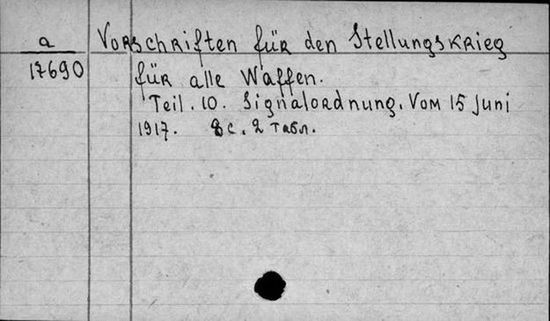 a Vorschriften für den Stellungskrieg
17690 für alle Waffen.
Teil. 10. Signalordnung. Vom 15 Juni
1917. 8 c. 2 табл.